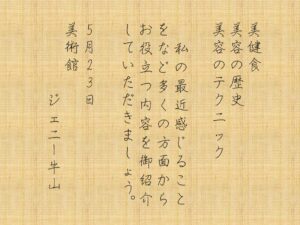 美健食
美容の歴史
美容のテクニック
私の最近感じること
をなど多くの方面から
お役立つ内容を御紹介
していただきましょう。
5月23日
美術館
ジェニー牛山